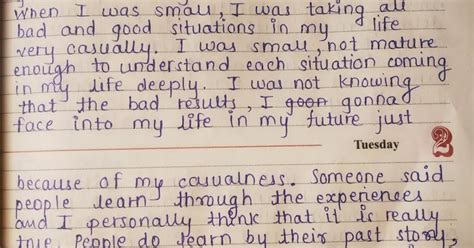 When I was small, I was taking all
bad and good situations in my life
very casually. I was small, not mature
enough to understand each situation coming
in my life deeply. I was not knowing
that the bad results, I goon gonna
face into my life in my future just
Tuesday 2
because of my casualness. Someone said
people learn through the experiences
and I personally think that it is really
true. People do learn by their past story.